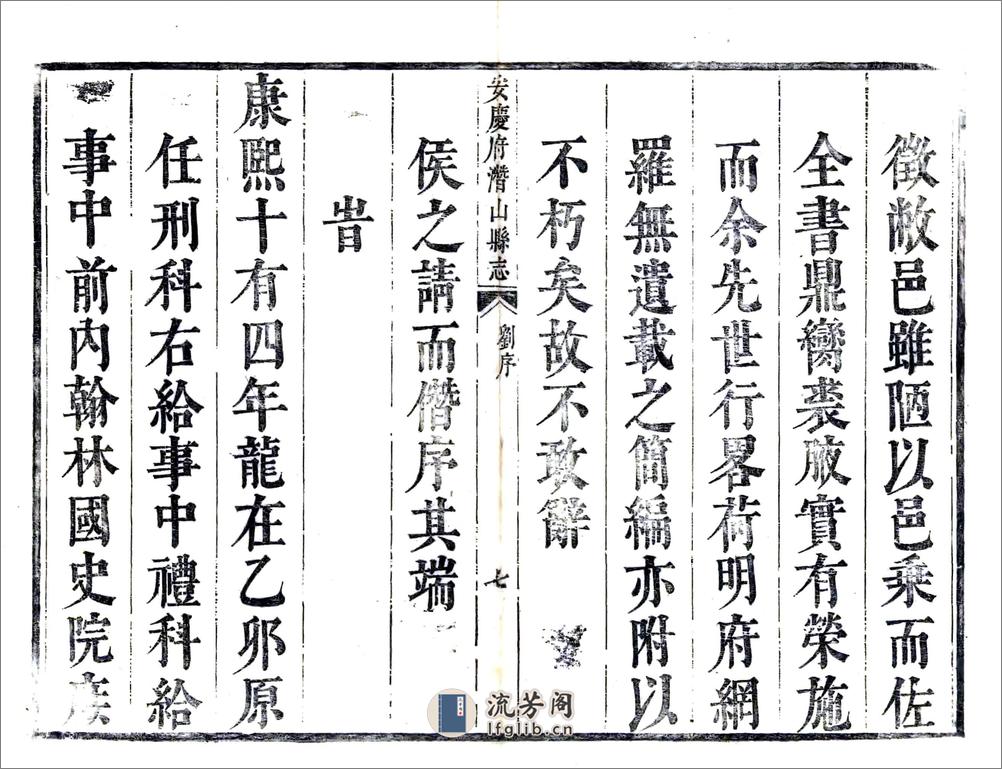 徵敝邑雖陋以邑乘而佐
全書鼎臠裘腋實有榮施
而余先世行畧荷明府網
羅無遺載之簡編亦附以
不朽矣故不敢辭
安慶府潛山縣志 劉序 七
侯之請而僭序其端
旹
康熙十有四年龍在乙卯原
任刑科右給事中禮科給
事中前內翰林國史院庶
流芳阁
lfglib.cn